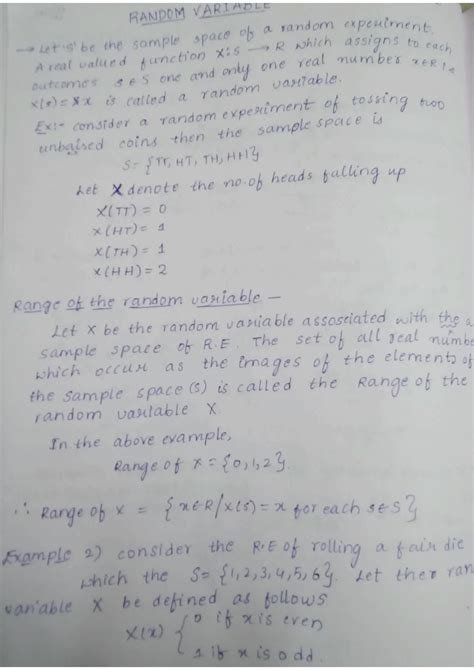 RANDOM VARIABLE
→ Let 's' be the sample space of a random experiment.
A real valued function X:S → R which assigns to each
outcomes s∈S one and only one real number x∈R i.e
X(s)=x is called a random variable.
Ex:- consider a random experiment of tossing two
unbaised coins then the sample space is
S = {TT, HT, TH, HH}
Let X denote the no. of heads falling up
X(TT) = 0
X(HT) = 1
X(TH) = 1
X(HH) = 2
Range of the random variable —
Let X be the random variable assosciated with the a
sample space of R.E. The set of all real numbe
which occur as the images of the elements of
the sample space (s) is called the Range of the
random variable X.
In the above example,
Range of X = {0,1,2}.
∴ Range of X = {x∈R/X(s)=x for each s∈S}
Example 2) consider the R.E of rolling a fair die
which the S= {1,2,3,4,5,6}. Let ther ran
variable X be defined as follows
X(x) { 0 if x is even
1 if x is odd.